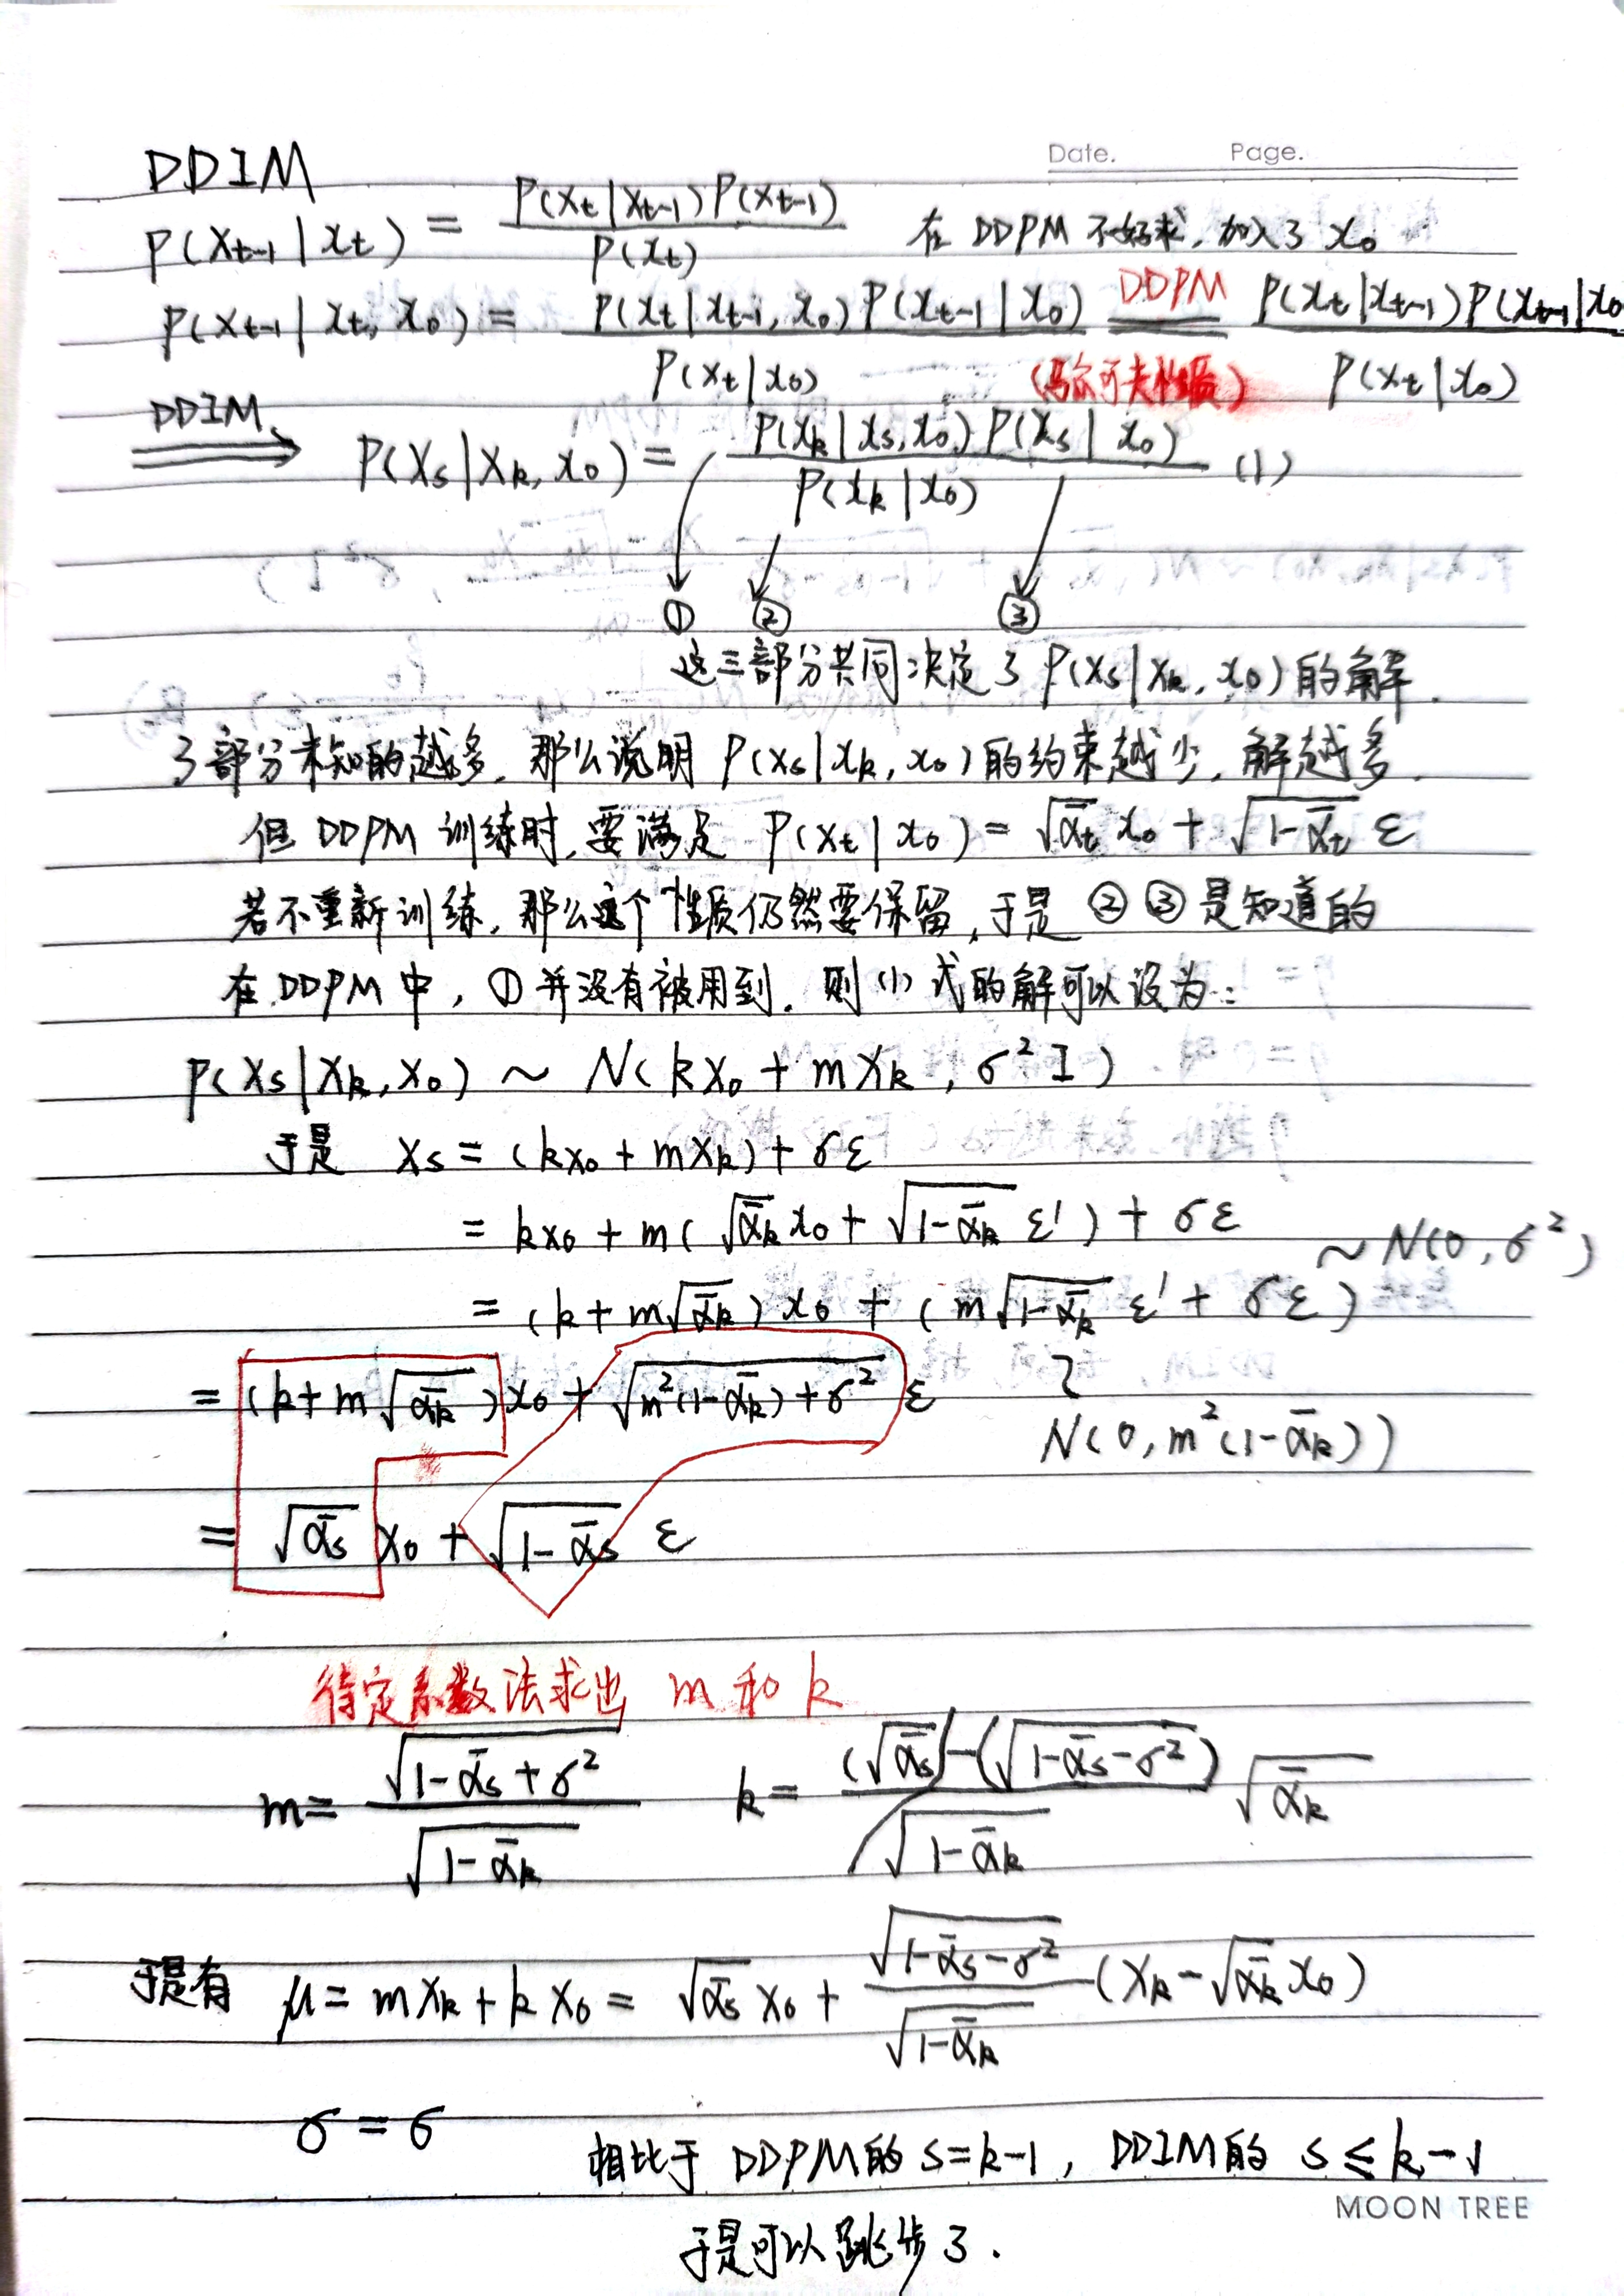 Date. Page.
DDIM
P(Xt-1|xt) = P(Xt|Xt-1)P(Xt-1) / P(xt) 在 DDPM 不好求, 加入了 x₀
P(Xt-1|xt, x₀) = P(xt|xt-1, x₀)P(xt-1|x₀) / P(xt|x₀) DDPM = (马尔可夫性质) P(xt|xt-1)P(xt-1|x₀ / P(xt|x₀)
DDIM ⟹ P(Xs|Xk, x₀) = P(xk|xs, x₀)P(xs|x₀) / P(xk|x₀) (1)
① ② ③
这三部分共同决定了 P(xs|xk, x₀)的解.
3部分未知的越多, 那么说明 P(xs|xk, x₀)的约束越少, 解越多.
但 DDPM 训练时, 要满足 P(xt|x₀) = √ᾱt x₀ + √(1-ᾱt) ε
若不重新训练, 那么这个性质仍然要保留, 于是 ② ③ 是知道的
在 DDPM 中, ① 并没有被用到. 则 (1) 式的解可以设为:
P(Xs|Xk, X₀) ~ N(kx₀ + mXk, σ²I)
于是 Xs = (kx₀ + mXk) + σε
= kx₀ + m(√ᾱk x₀ + √(1-ᾱk) ε') + σε
~ N(0, σ²)
= (k + m√ᾱk) x₀ + (m√(1-ᾱk) ε' + σε)
= (k + m√ᾱk) x₀ + √(m²(1-ᾱk) + σ²) ε
~ N(0, m²(1-ᾱk))
= √ᾱs x₀ + √(1-ᾱs) ε
待定系数法求出 m 和 k
m = √(1-ᾱs+σ²) / √(1-ᾱk) k = (√ᾱs) - (√(1-ᾱs-σ²)) / √(1-ᾱk) √ᾱk
于是有 μ = mXk + kX₀ = √ᾱs X₀ + √(1-ᾱs-σ²) / √(1-ᾱk) (Xk - √ᾱk x₀)
σ = σ
相比于 DDPM的 s=k-1, DDIM的 s ≤ k-1
MOON TREE
于是可以跳步了.